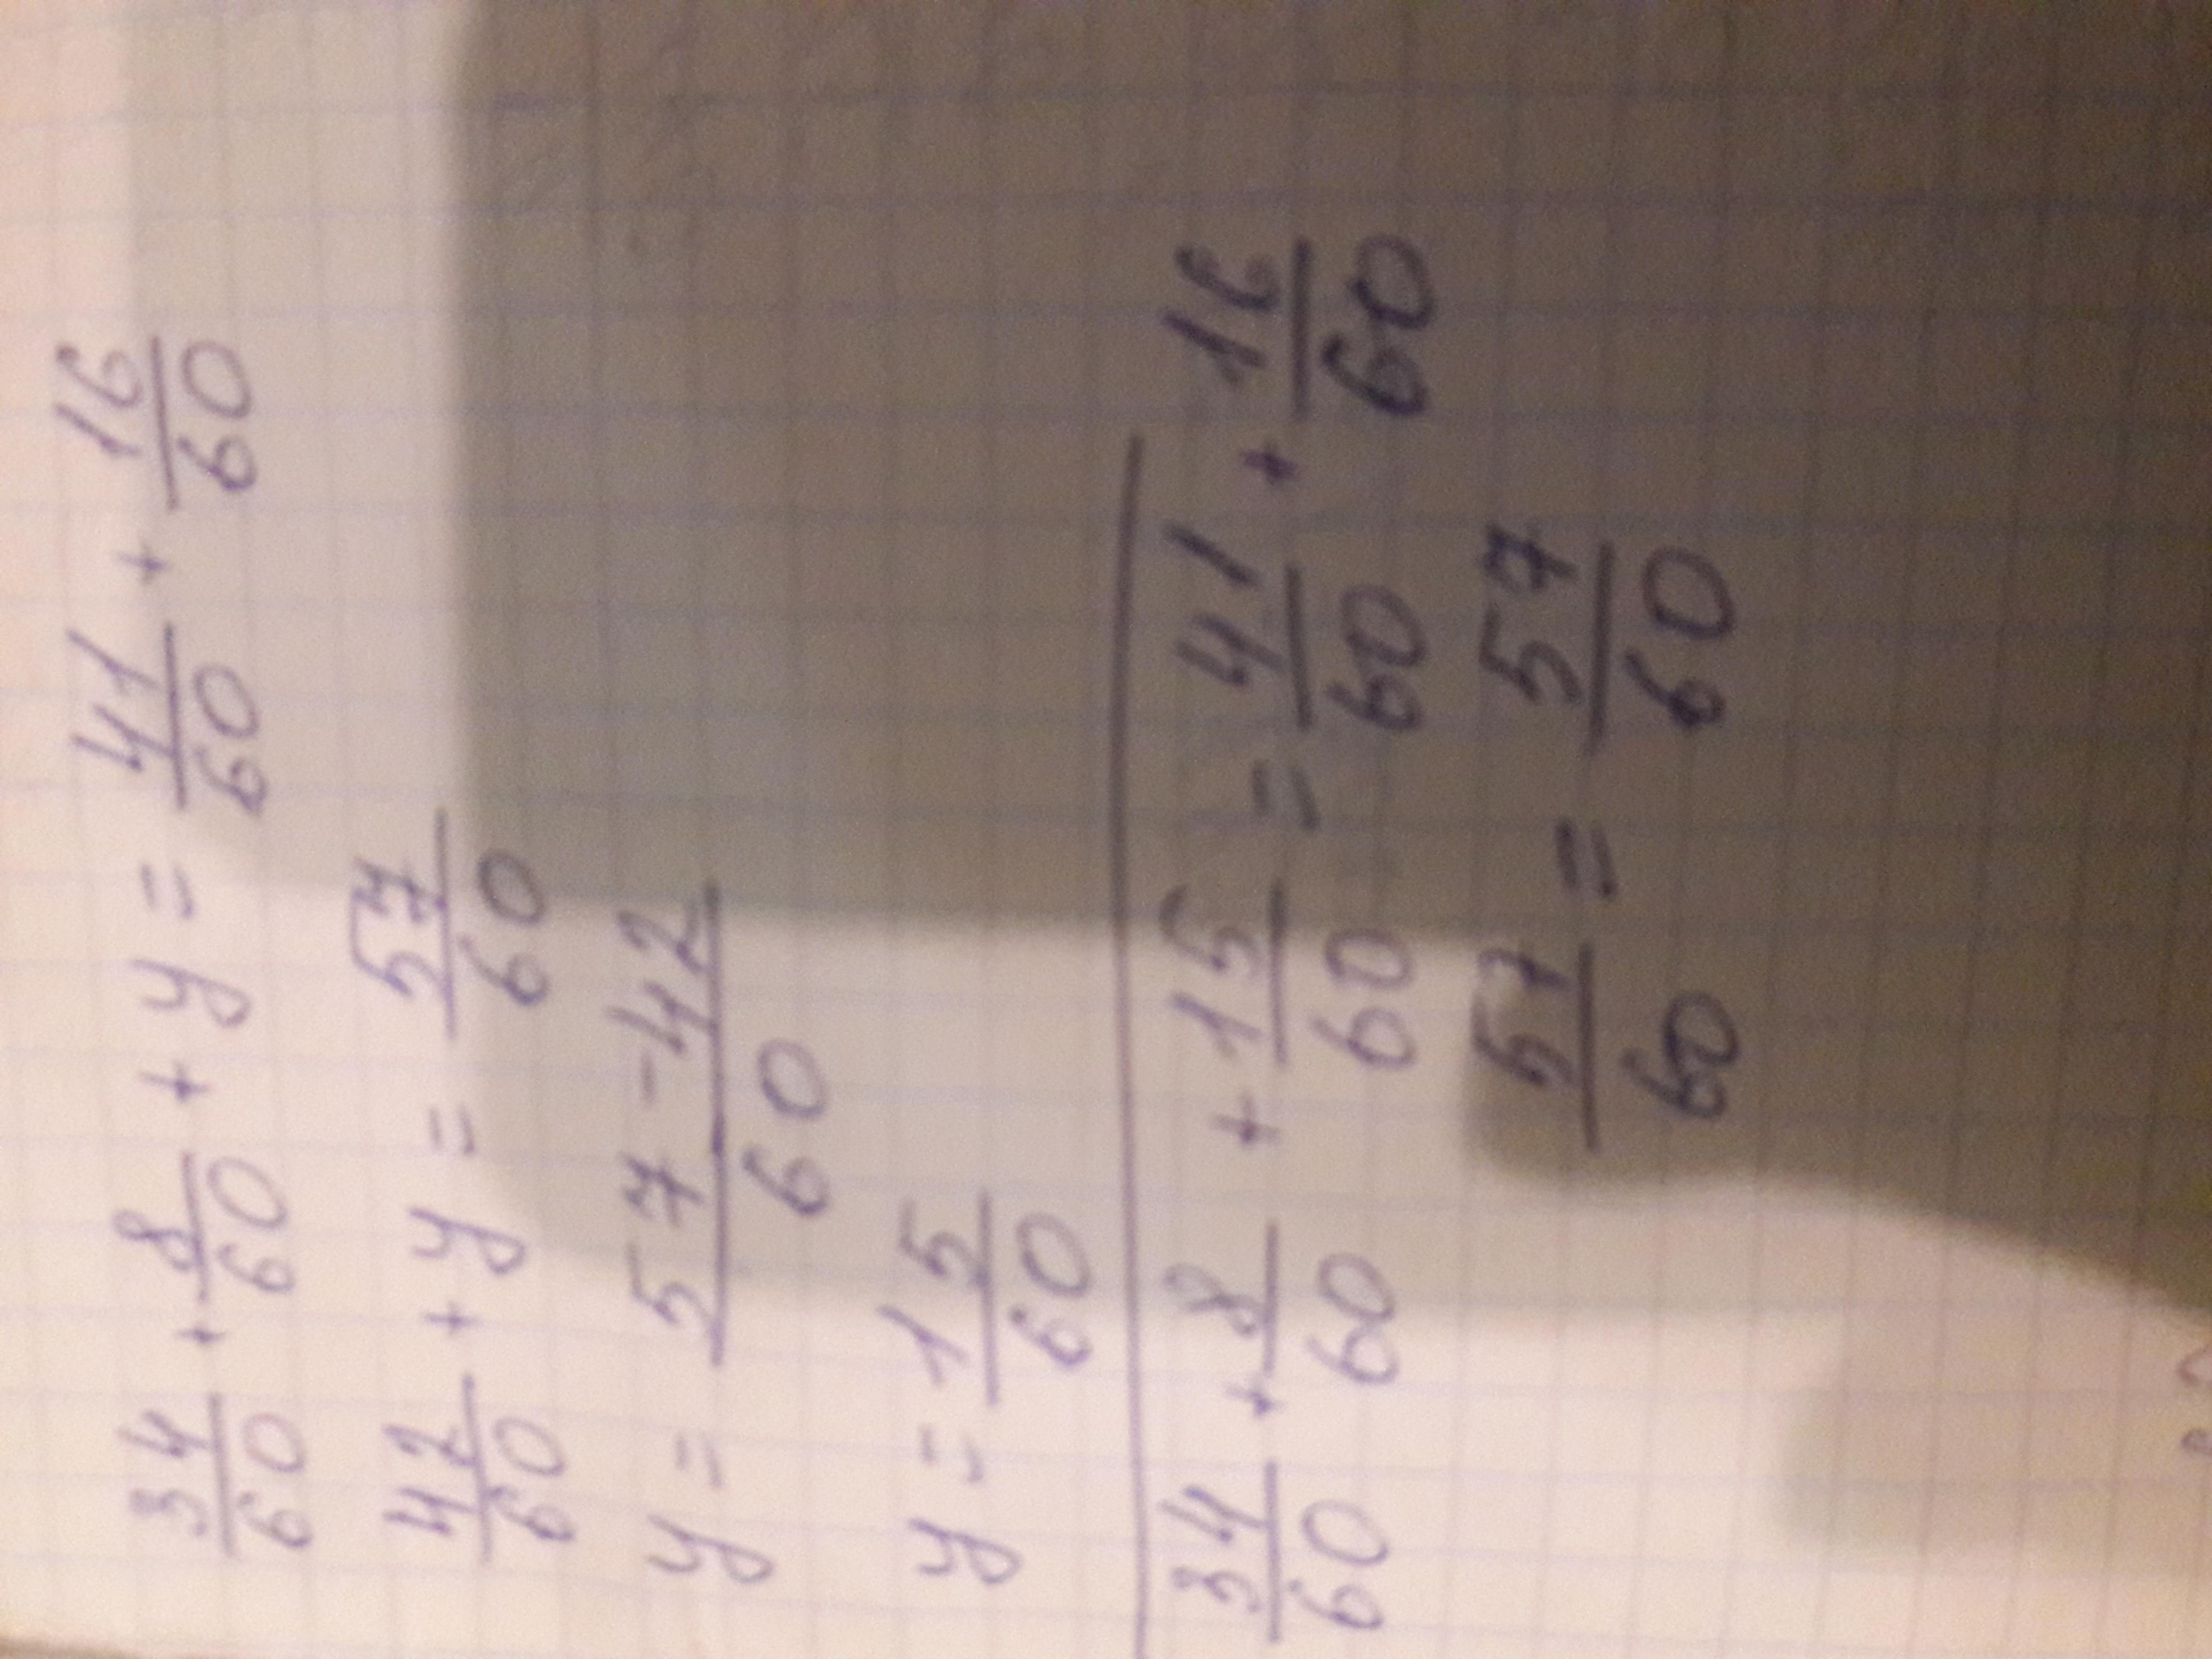 34/60 + 8/60 + y = 41/60 + 16/60
42/60 + y = 57/60
y = (57 - 42)/60
y = 15/60
34/60 + 8/60 + 15/60 = 41/60 + 16/60
57/60 = 57/60